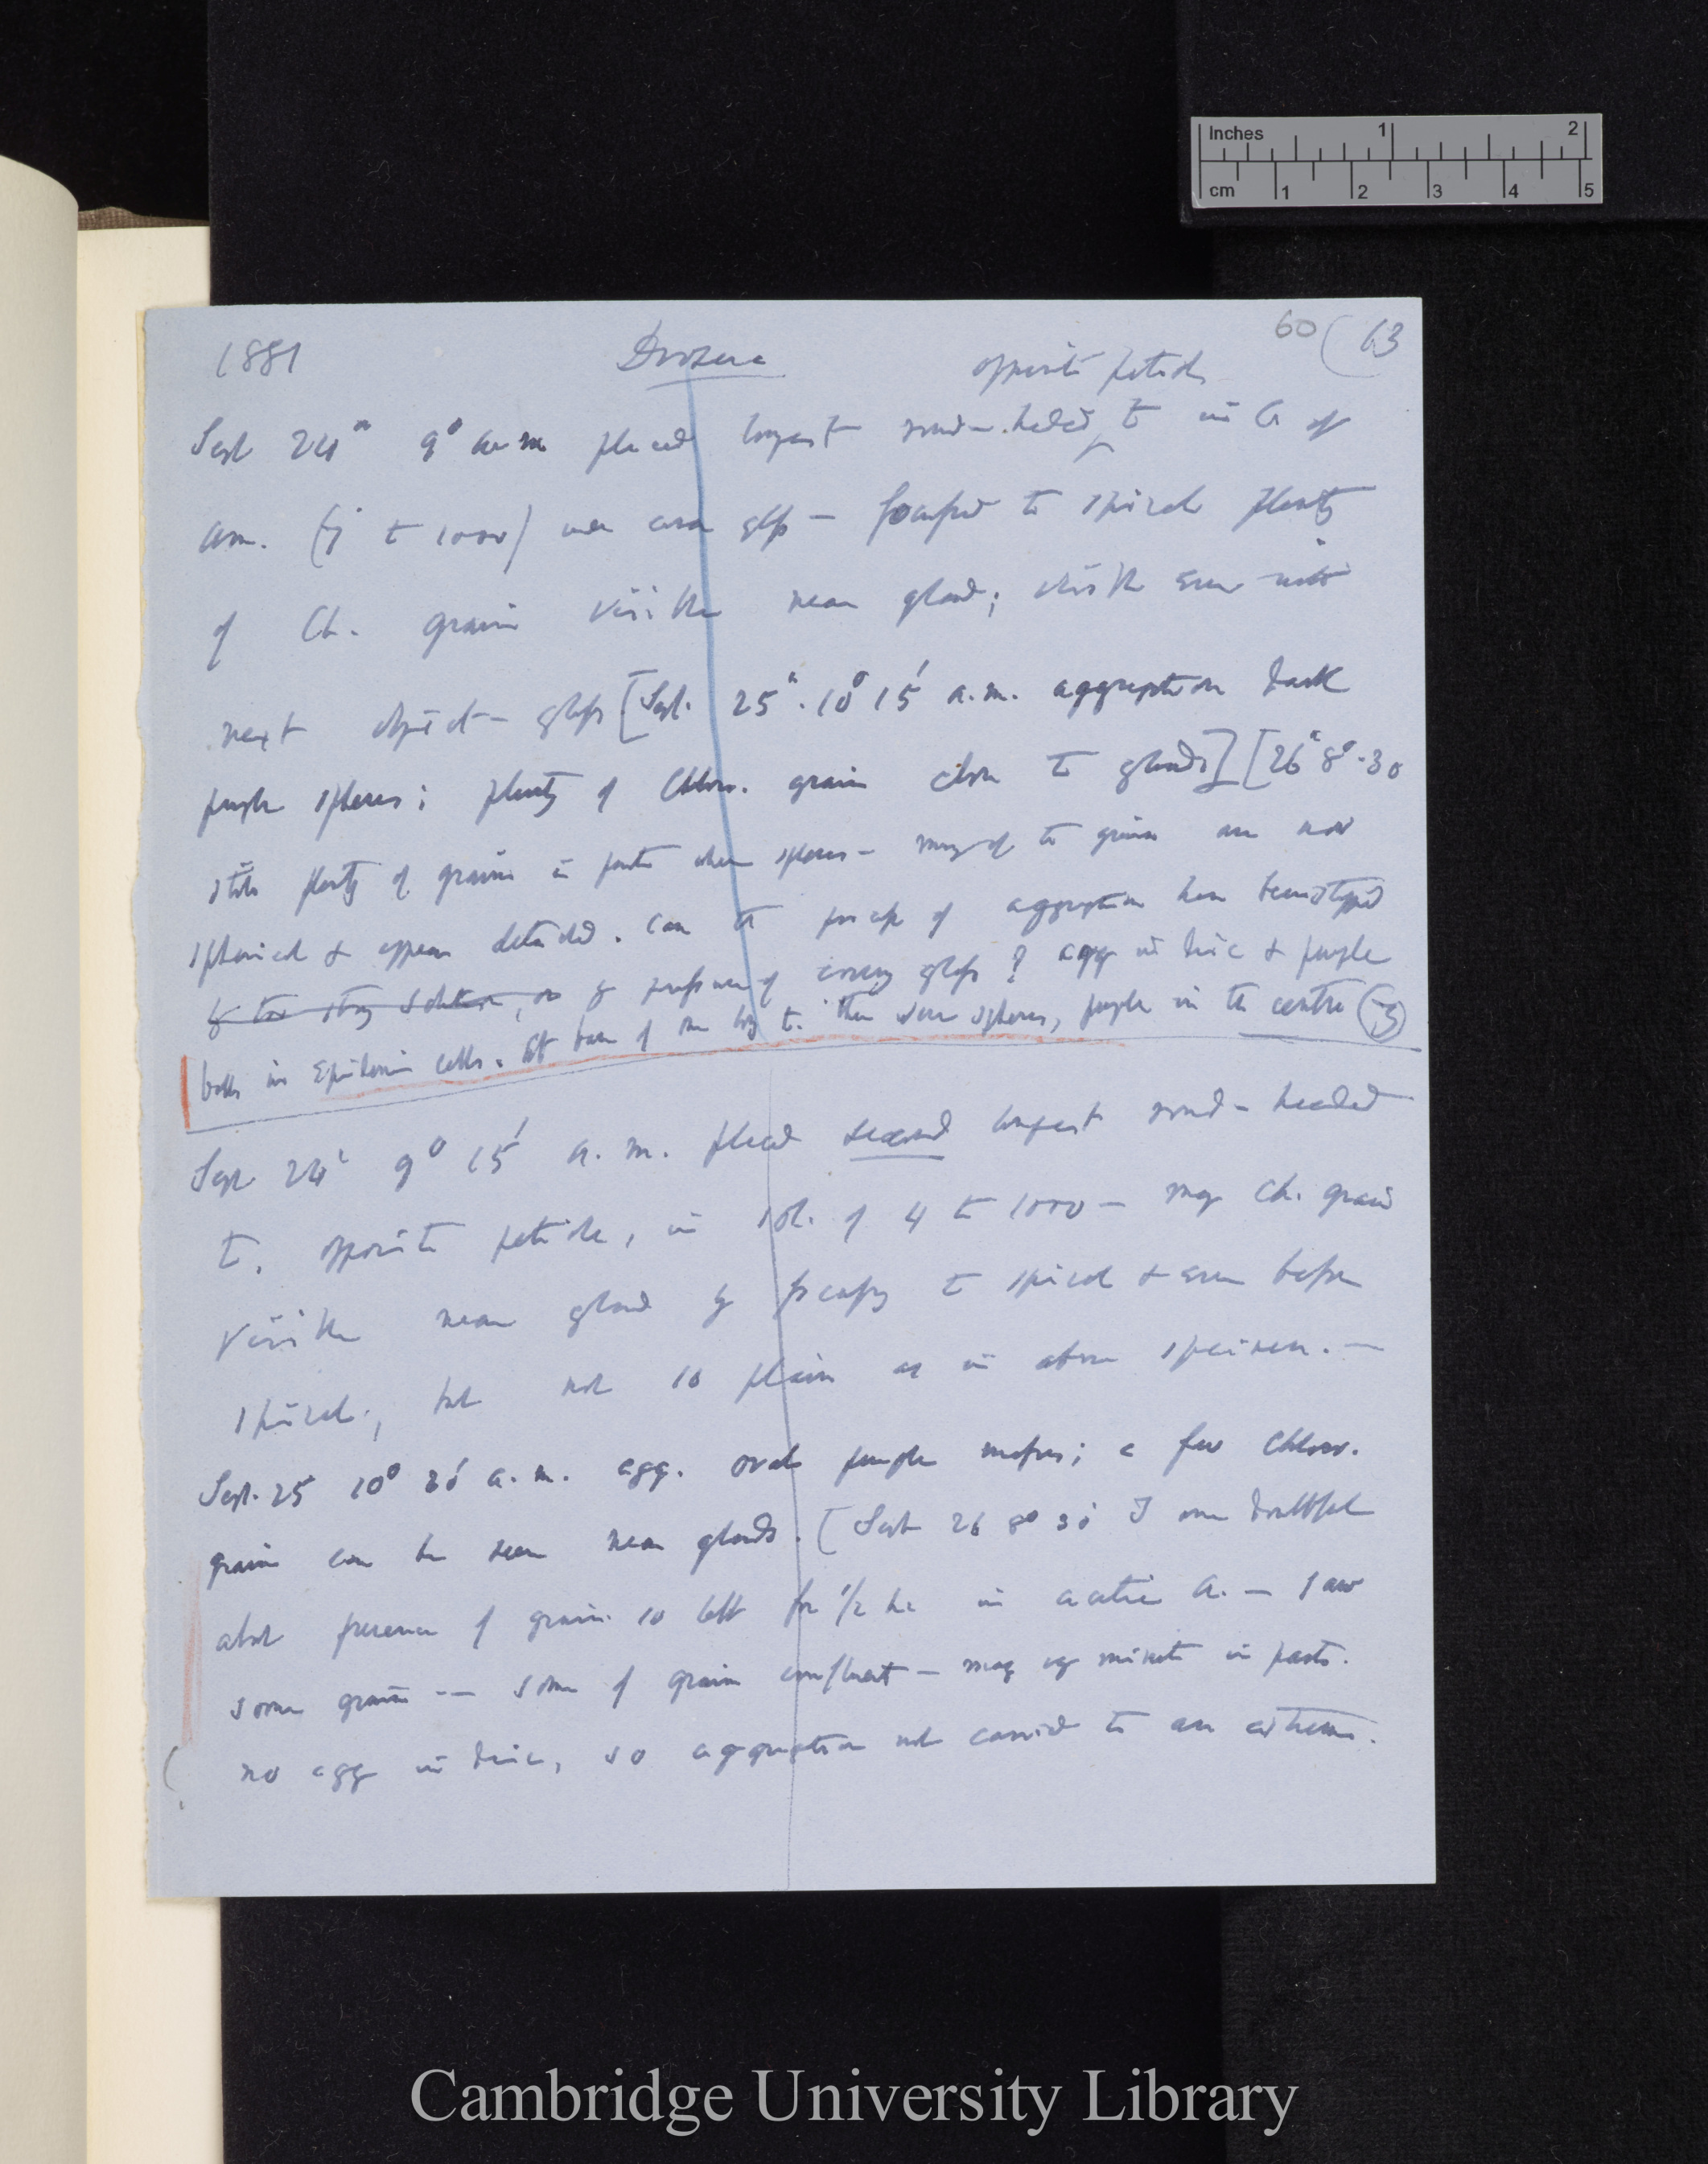 Inches 1 2
cm 1 2 3 4 5
60 (63
1881 Drosera
opposite petiole
Sept 24th 9° a.m placed longest round-headed t. in C of
am. (7 to 1000) under cover glass — focussed to spiral plenty
of Ch. grains visible near gland; visible even with
next object-glass [Sept. 25th. 10° 15' a.m. aggregation dark
purple spheres; plenty of Chloro. grains close to glands] [26th 8°.30
still plenty of grains in parts where spheres — many of the grains are now
spherical & appear detached. Can the process of aggregation have been stopped
by too strong solution, or by pressure of covering glass? agg in disc & purple
balls in Epidermic cells. At base of one long t. there were spheres, purple in the centre
Sept 24th 9° 15' a.m. placed second longest round-headed
t. opposite petiole, in sol. of 4 to 1000 — many Ch. grains
visible near gland by focussing to spiral & even before
spiral, but not so plain as in above specimen. —
Sept. 25 10° 20' a.m. agg. oval purple masses; a few Chloro.
grains can be seen near glands. [Sept 26 8° 30' I am doubtful
about presence of grains so left for 1/2 hr in acetic A. — saw
some grains -- some of grains confluent — many v minute in parts.
no agg in disc, so aggregation not carried to an extreme.
Cambridge University Library